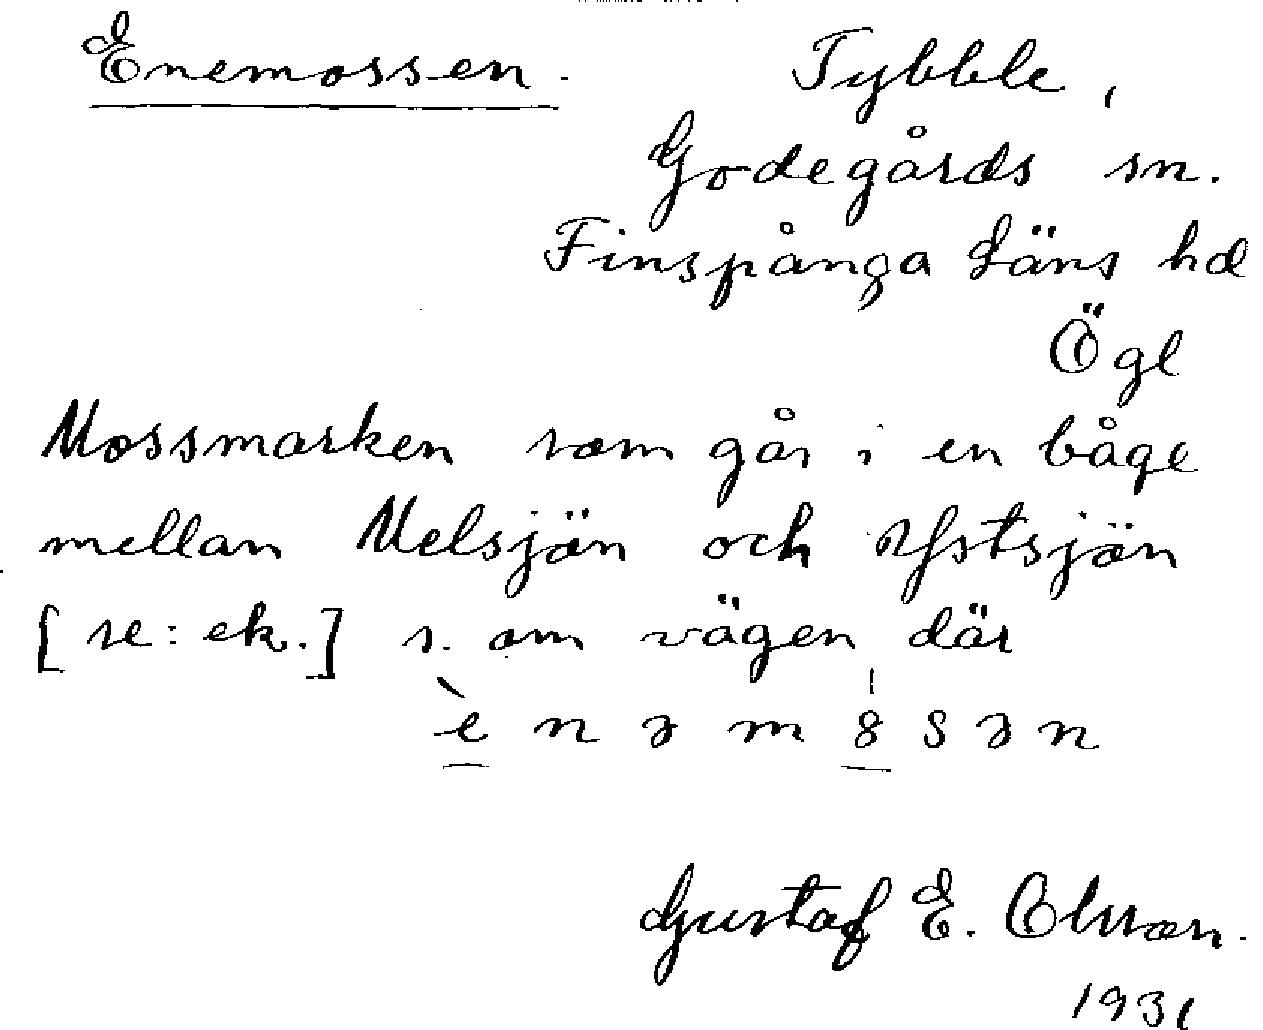 Enemossen. Tybble,
Godegårds sn.
Finspånga läns hd
Ögl
Mossmarken som går i en båge
mellan Melsjön och Ystsjön
[se: ek.] s. om vägen där
è n ə m 8 s ə n
Gustaf E. Olsson.
1931